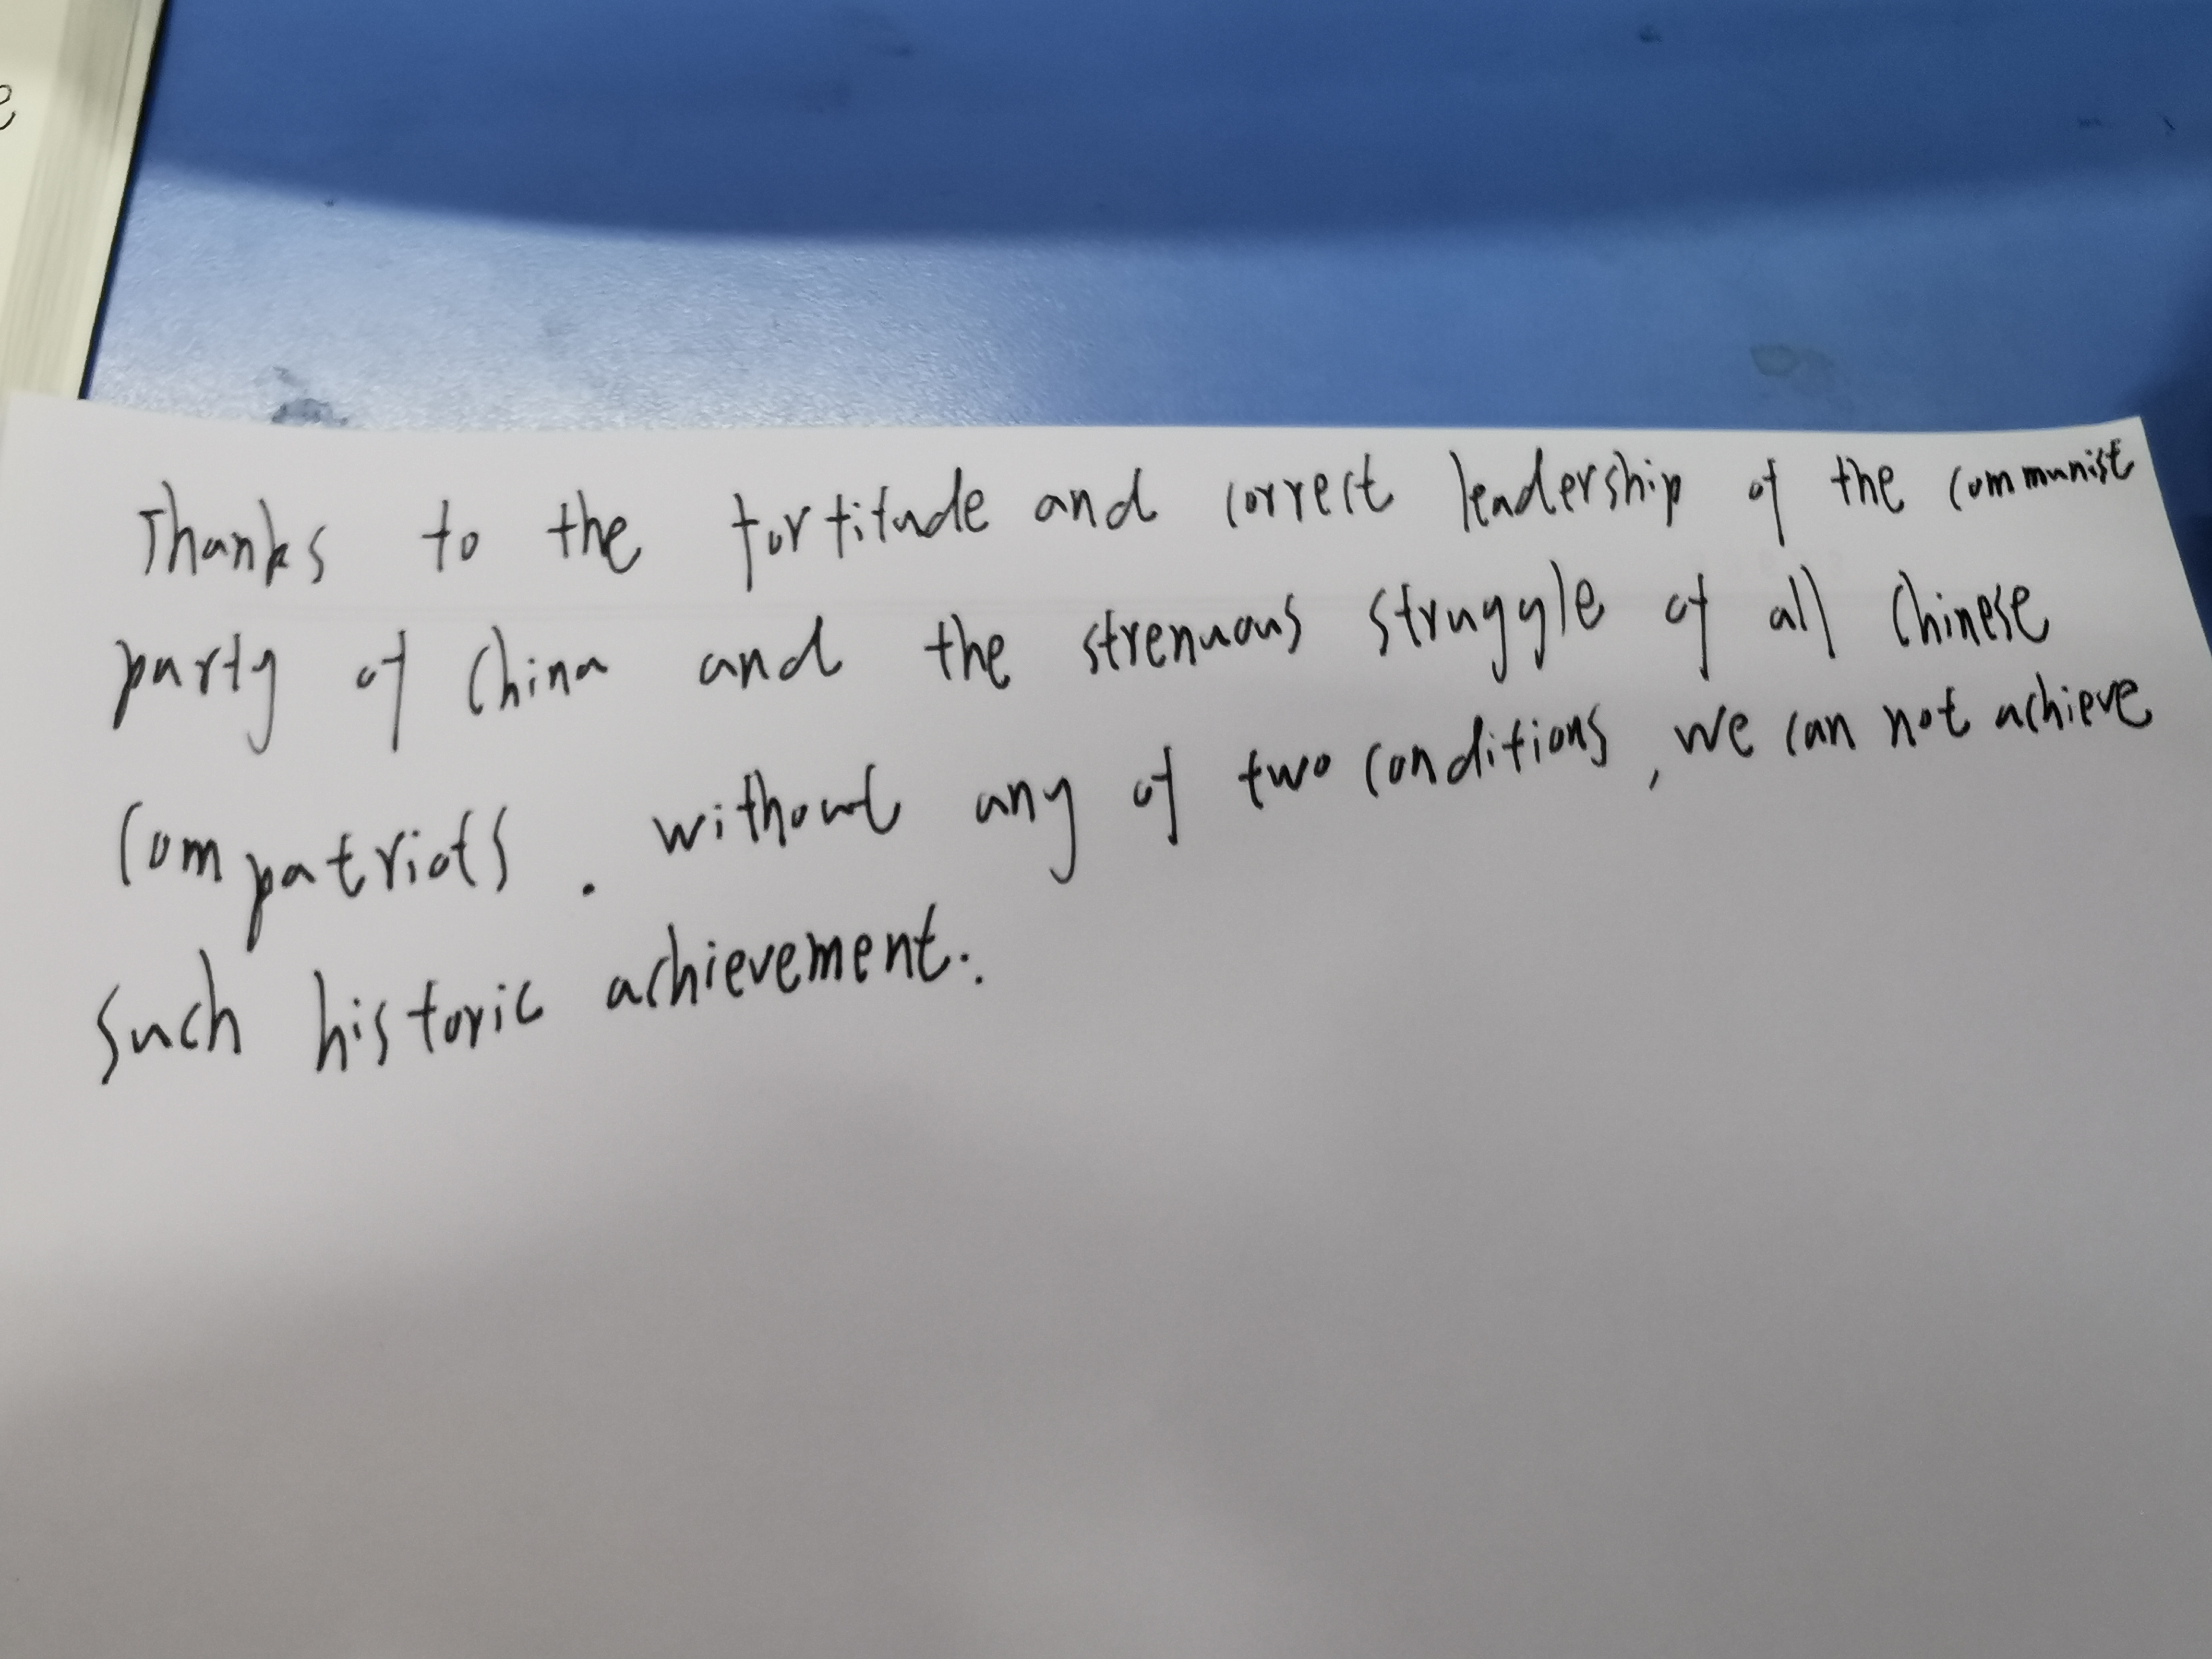 Thanks to the fortitude and correct leadership of the communist
party of China and the strenuous struggle of all Chinese
compatriots. without any of two conditions, we can not achieve
such historic achievement.